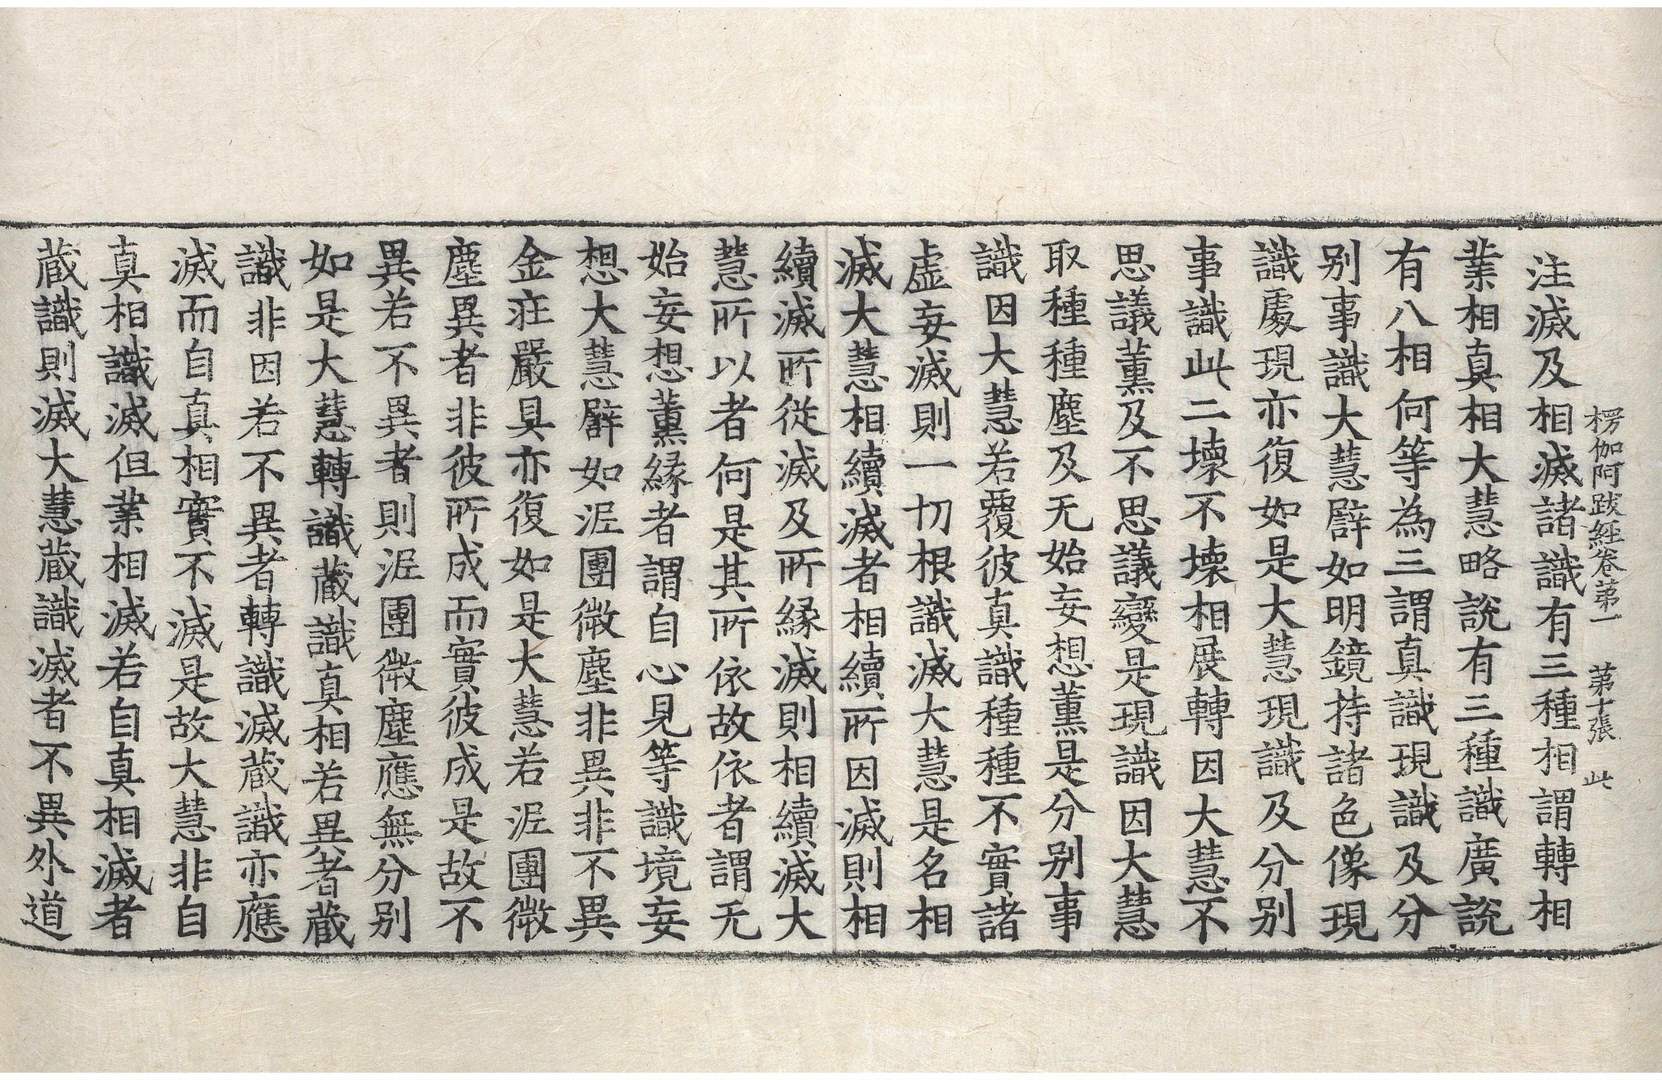 楞伽阿跋經卷第一 第十張 此
注滅及相滅諸識有三種相謂轉相
業相真相大慧略說有三種識廣說
有八相何等為三謂真識現識及分
别事識大慧譬如明鏡持諸色像現
識處現亦復如是大慧現識及分别
事識此二壞不壞相展轉因大慧不
思議薰及不思議變是現識因大慧
取種種塵及无始妄想薰是分别事
識因大慧若覆彼真識種種不實諸
虛妄滅則一切根識滅大慧是名相
滅大慧相續滅者相續所因滅則相
續滅所從滅及所縁滅則相續滅大
慧所以者何是其所依故依者謂无
始妄想薰縁者謂自心見等識境妄
想大慧譬如泥團微塵非異非不異
金莊嚴具亦復如是大慧若泥團微
塵異者非彼所成而實彼成是故不
異若不異者則泥團微塵應無分别
如是大慧轉識藏識真相若異者藏
識非因若不異者轉識滅藏識亦應
滅而自真相實不滅是故大慧非自
真相識滅但業相滅若自真相滅者
藏識則滅大慧藏識滅者不異外道